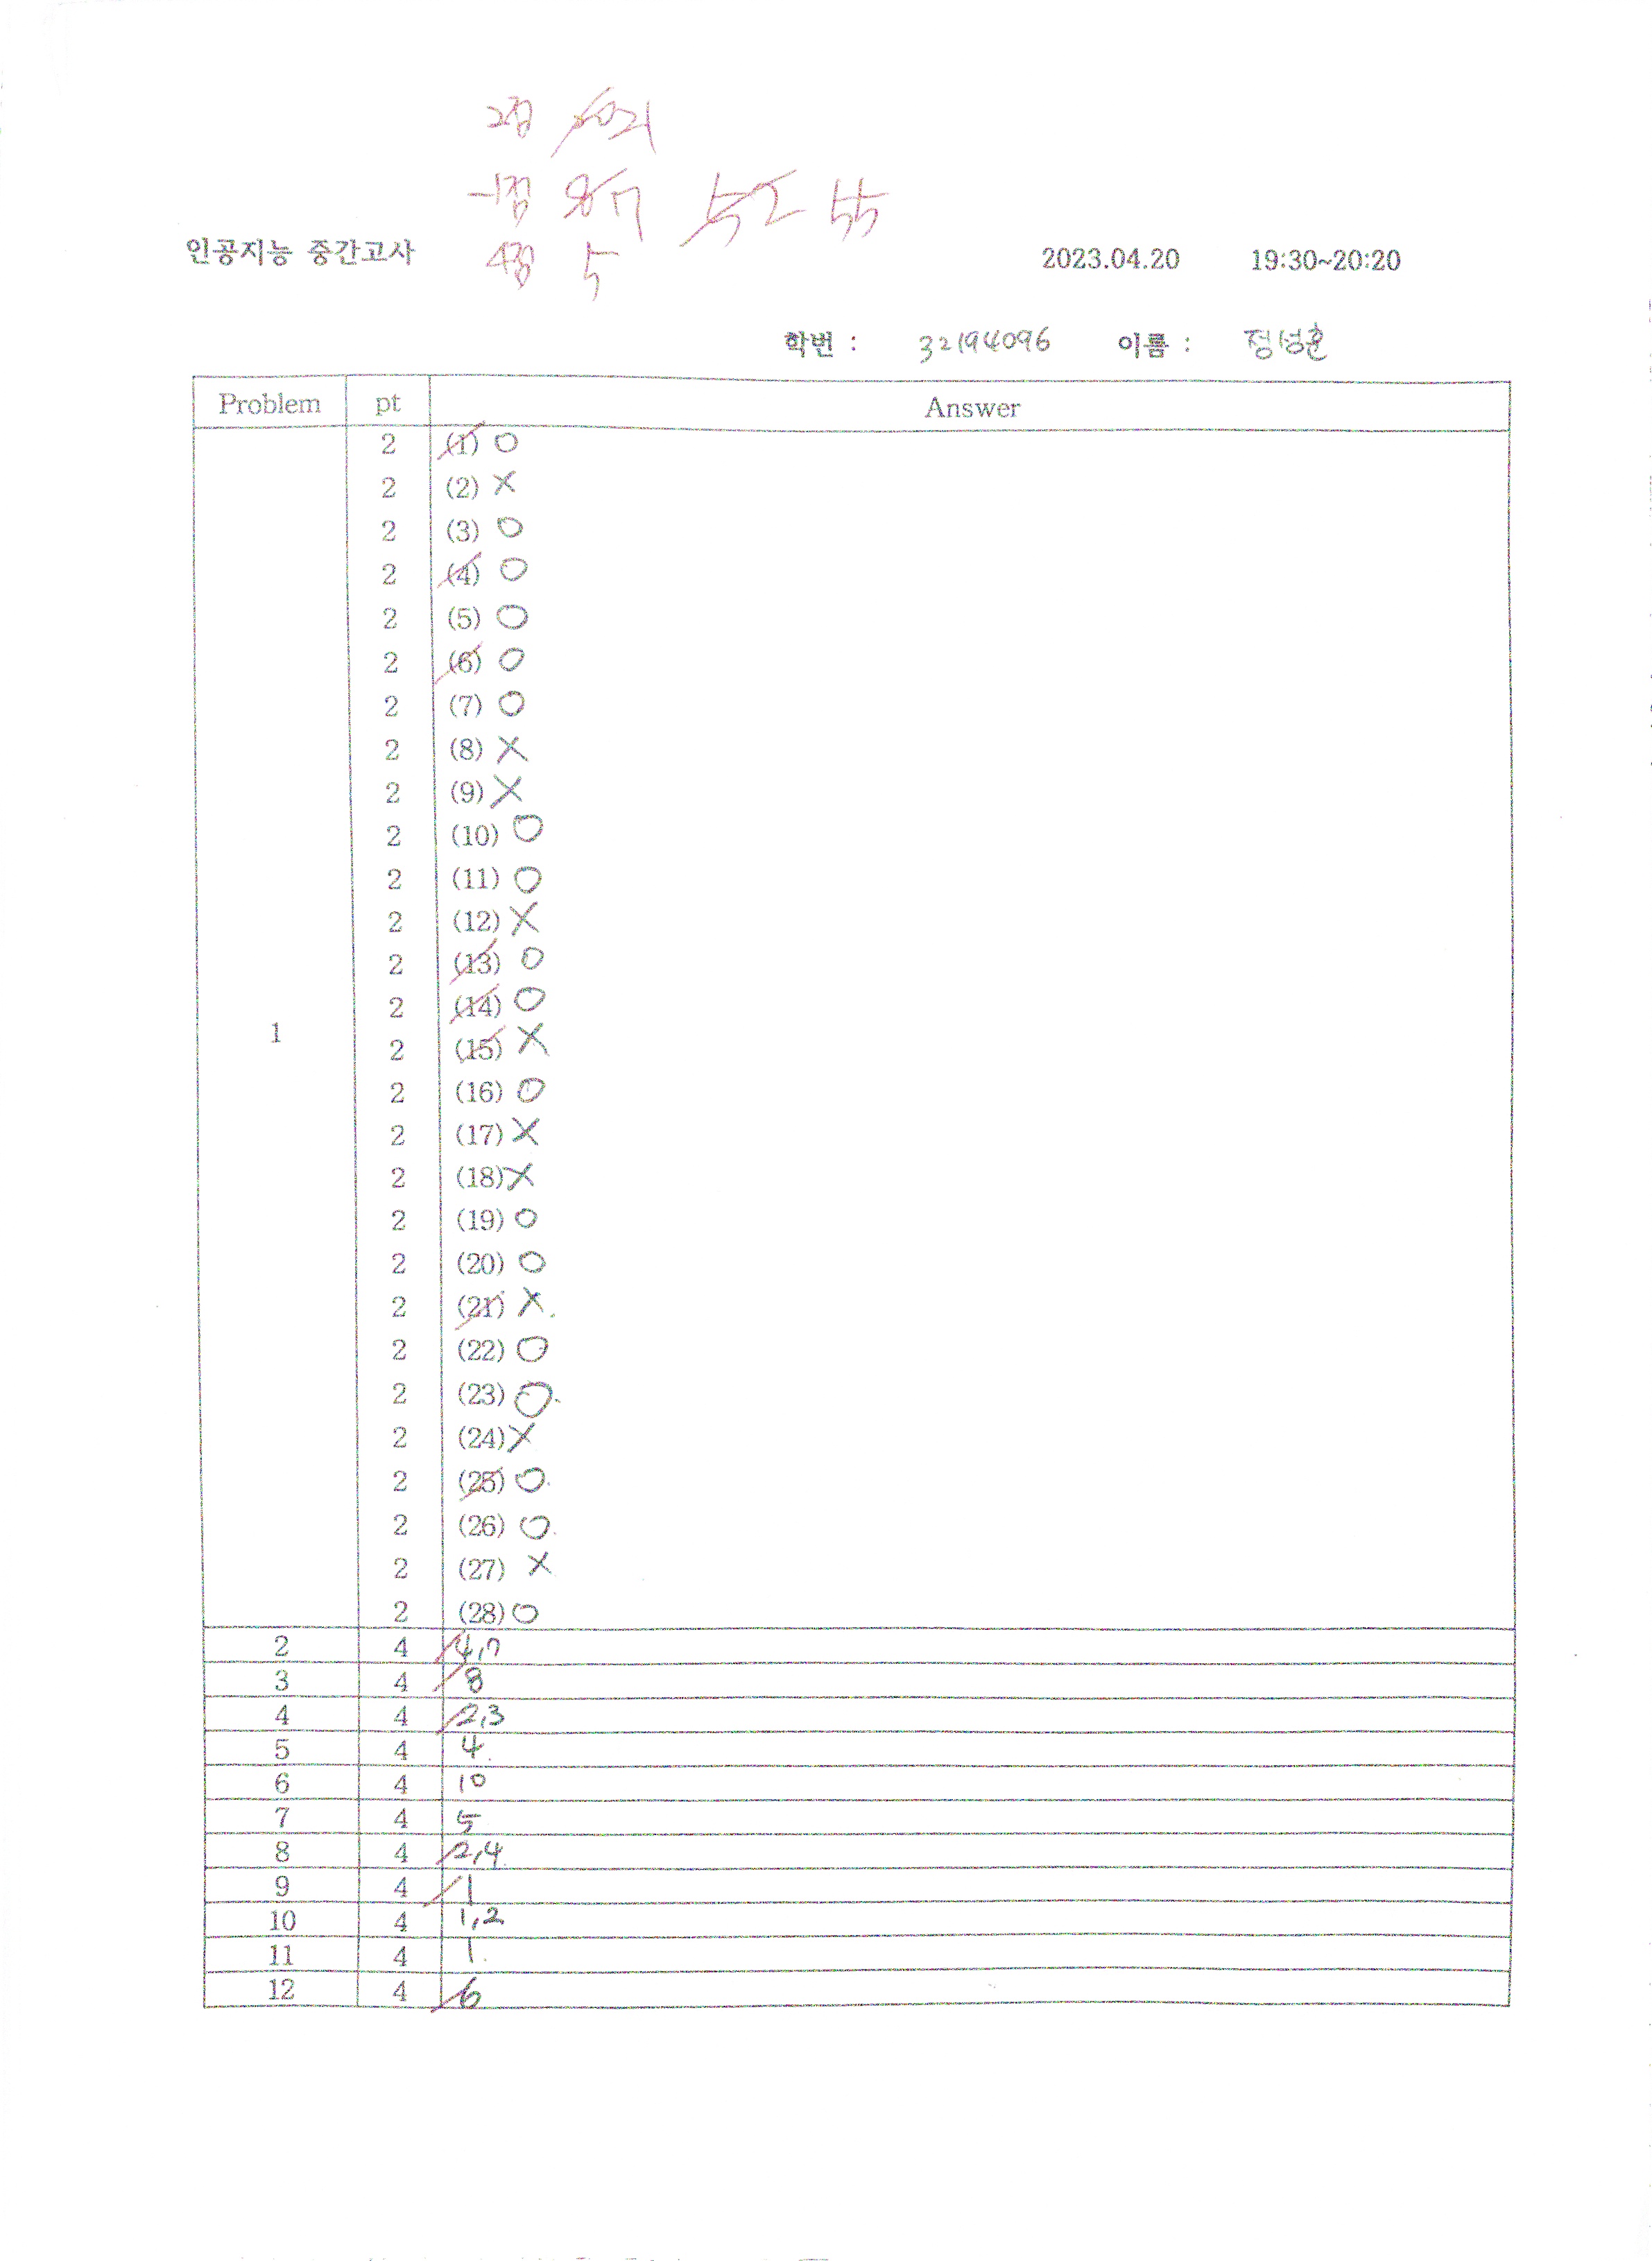 2점 21
-1점 7 52 55
인공지능 중간고사 4점 5 2023.04.20 19:30~20:20
학번 : 32194096 이름 : 정성훈
Problem pt Answer
2 (1) O
2 (2) X
2 (3) O
2 (4) O
2 (5) O
2 (6) O
2 (7) O
2 (8) X
2 (9) X
2 (10) O
2 (11) O
2 (12) X
2 (13) O
2 (14) O
1 2 (15) X
2 (16) O
2 (17) X
2 (18) X
2 (19) O
2 (20) O
2 (21) X.
2 (22) O
2 (23) O.
2 (24) X
2 (25) O.
2 (26) O.
2 (27) X
2 (28) O
2 4 4,7
3 4 8
4 4 2,3
5 4 4.
6 4 10
7 4 5
8 4 2,4.
9 4 1
10 4 1,2
11 4 1.
12 4 6